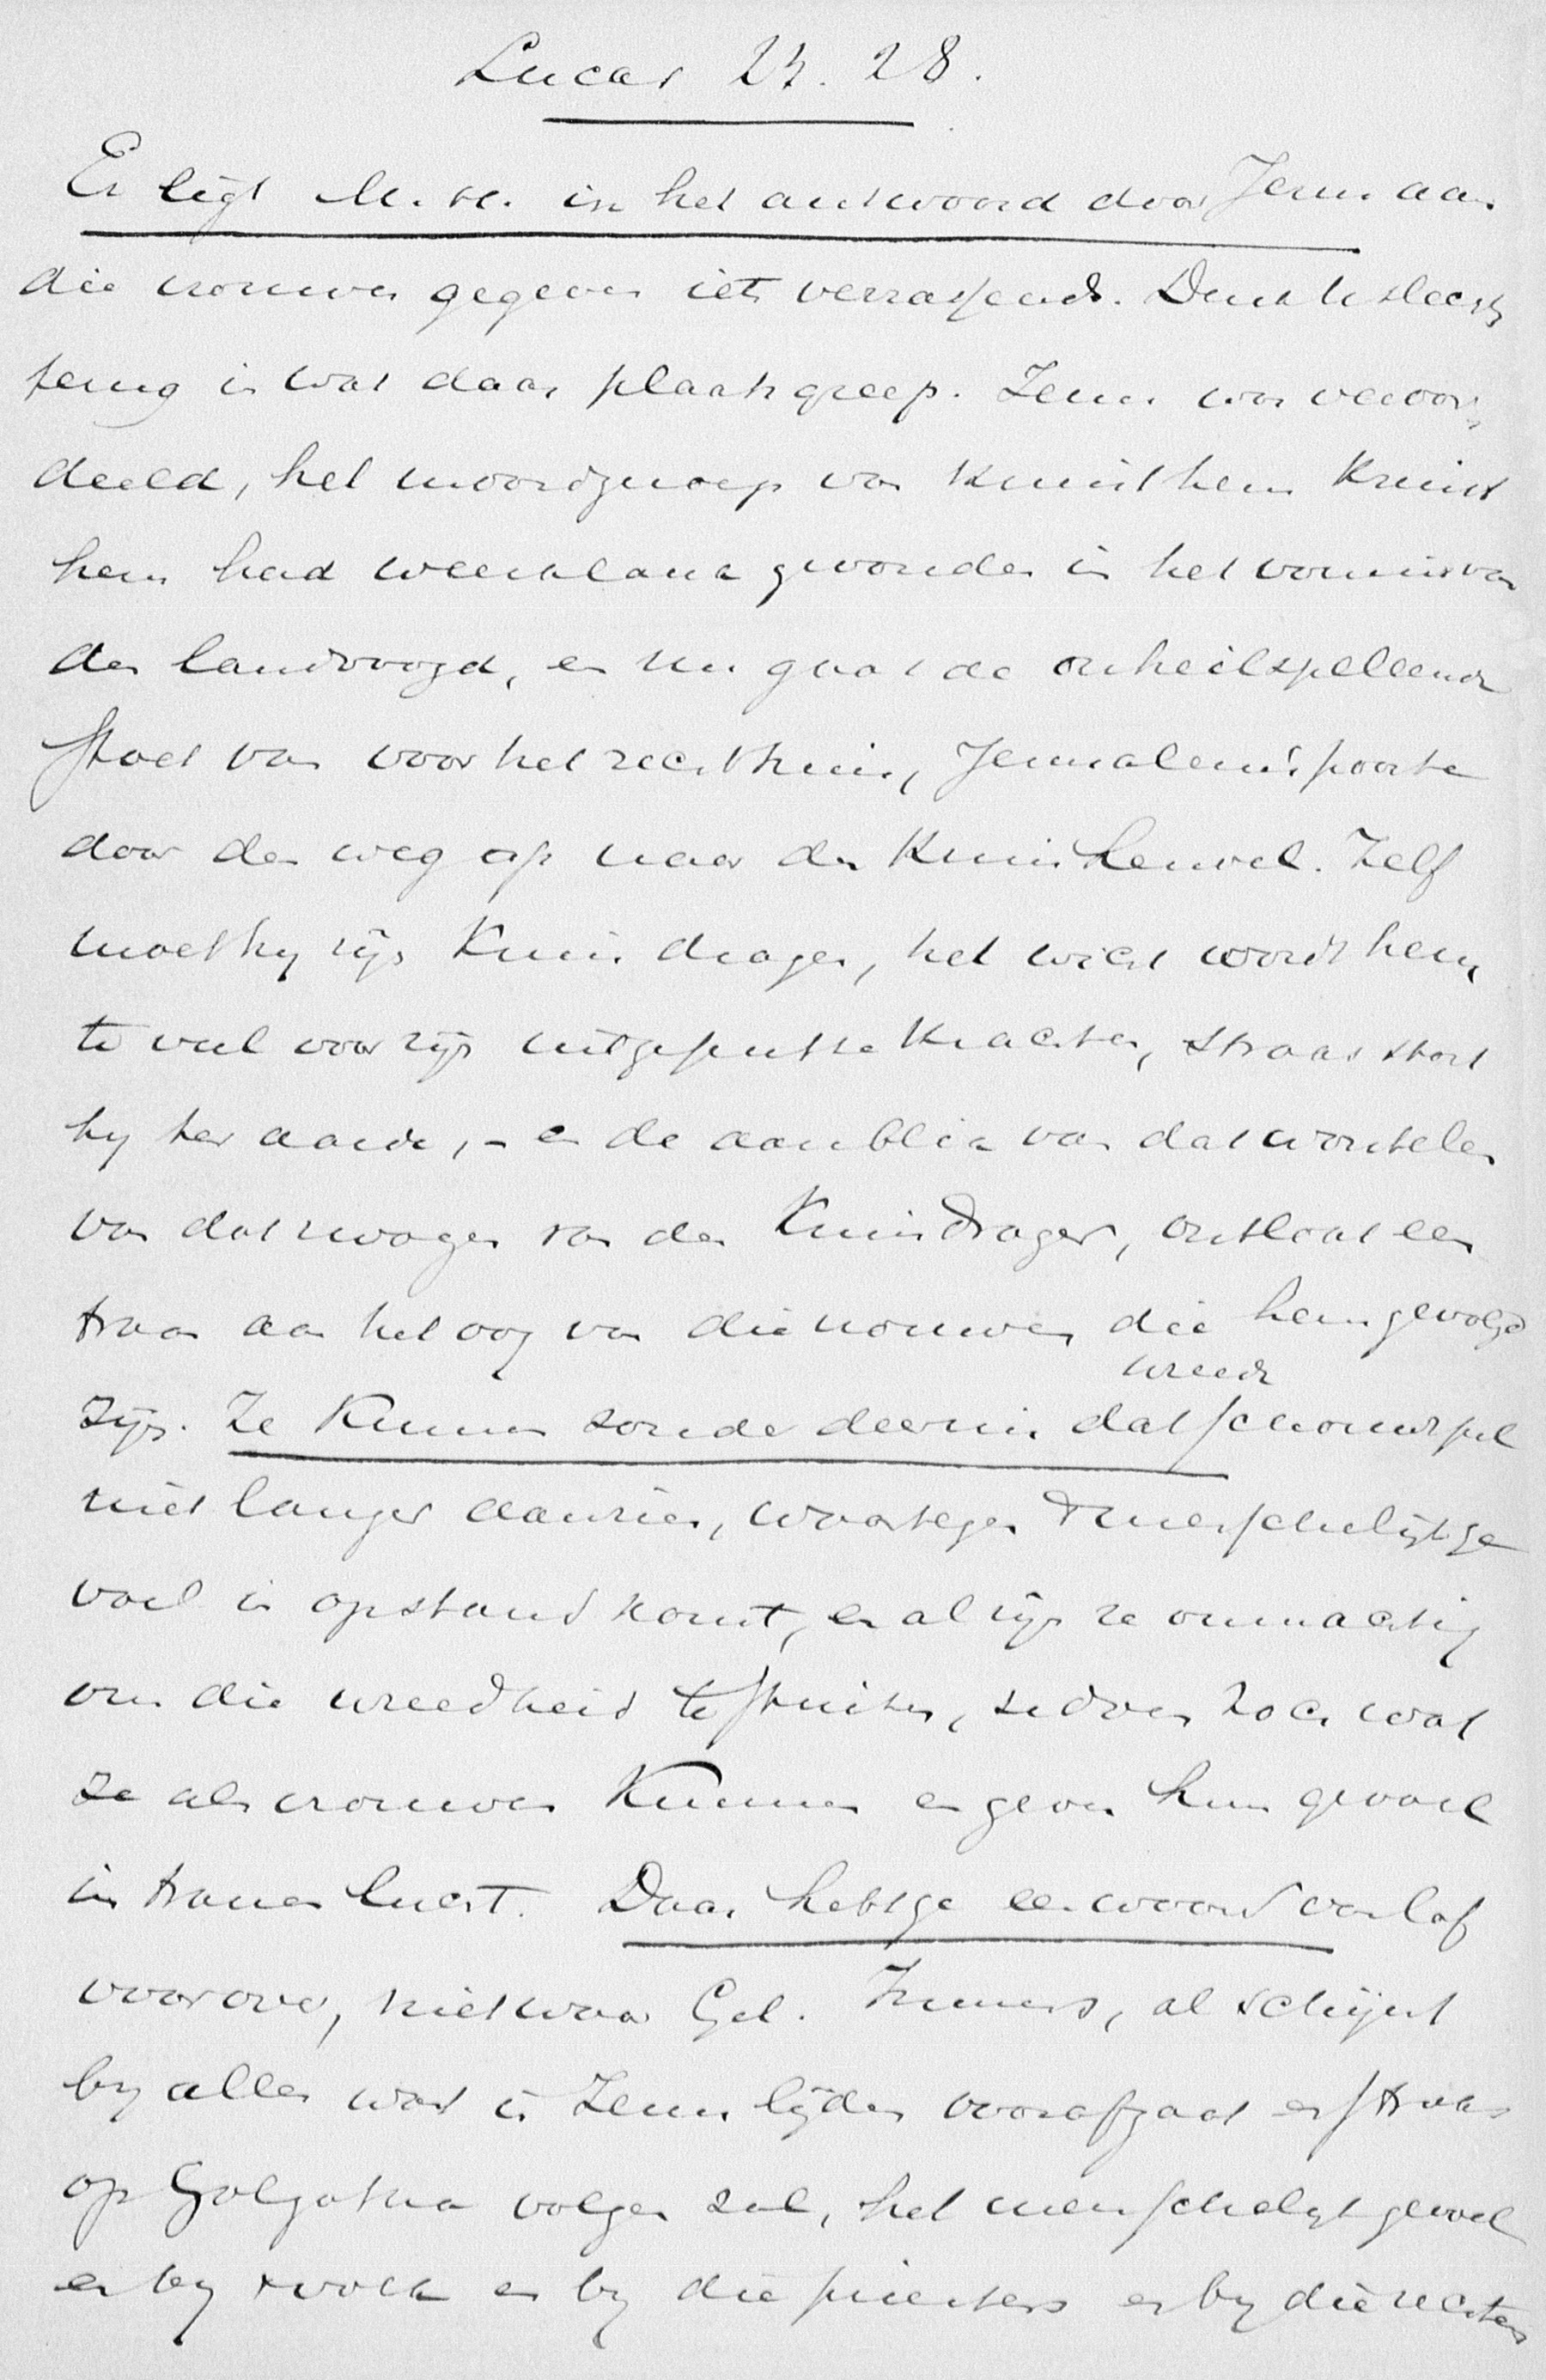 Lucas 23. 28.
Er ligt M. H. in het antwoord door Jezus aan
die vrouwen gegeven iets verrassends. Denk U slechts
terug in wat daar plaats greep. Jezus was veroor,
deeld, het moordgeroep van Kruist hem Kruist
hem had weerklank gevonden in het vonnis van
den landvoogd, en nu gaat de onheilspellende
stoet van voor het rechthuis, Jeruzalem's poorten
door den weg op naar den Kruisheuvel. Zelf
moet hy zijn Kruis dragen, het wicht wordt hem
te veel voor zijn uitgeputte Krachten, straks stort
hy ter aarde, – en de aanblik van dat worstelen
van dat zwoegen van den Kruisdrager, ontlokt een
traan aan het oog van die vrouwen die hem gevolgd
zijn. Ze Kunnen zonder deernis dat wreede schouwspel
niet langer aanzien, waartegen 't menschelijk ge
voel in opstand komt, en al zijn ze onmachtig
om die wreedheid te stuiten, ze doen toch wat
ze als vrouwen Kunnen en geven hun gevoel
in tranen lucht. Daar hebt ge een woord van lof
voor over, niet waar Gel. Immers, al schijnt
by alles wat in Jezus lijden voorafgaat en straks
op Golgotha volgen zal, het menschelijk gevoel
en by 't volk en by die priesters en by die rechters